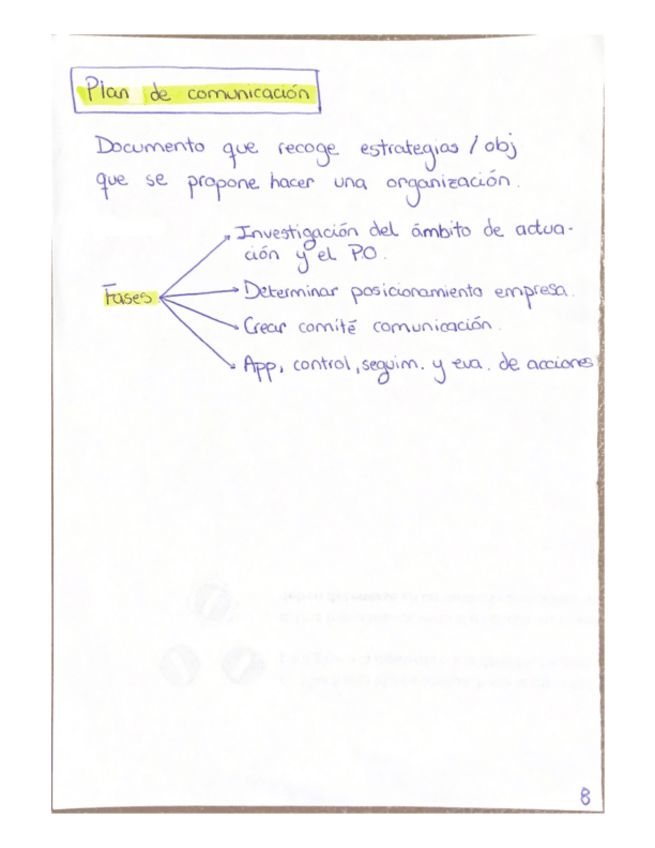 Plan de comunicación
Documento que recoge estrategias / obj
que se propone hacer una organización.
Investigación del ámbito de actua-
ción y el P.O.
Fases
Determinar posicionamiento empresa.
Crear comité comunicación.
App, control, seguim. y eva. de acciones
8